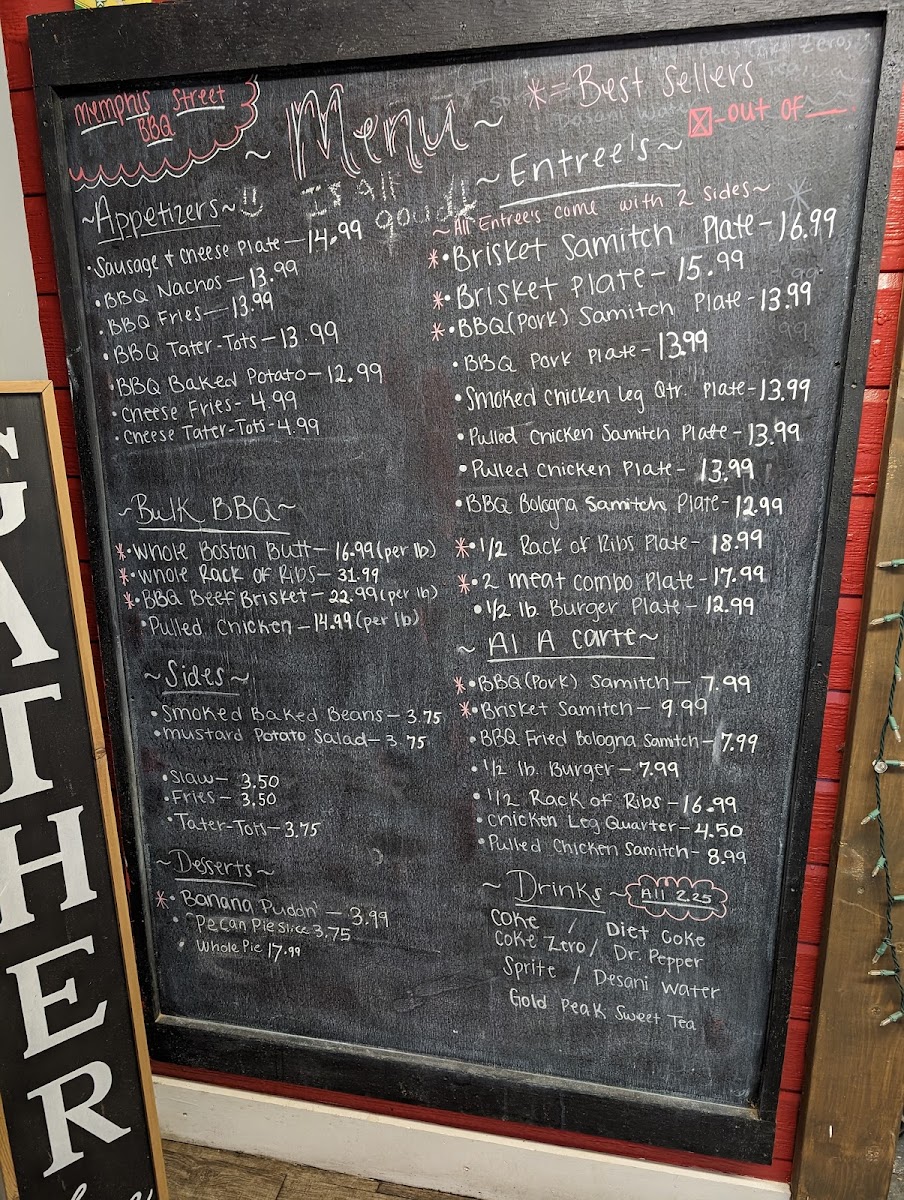 Memphis Street
BBQ
Menu
Is All
good!
*= Best Sellers
-out of
~Appetizers~
•Sausage + Cheese Plate—14.99
•BBQ Nachos—13.99
•BBQ Fries—13.99
•BBQ Tater-Tots—13.99
•BBQ Baked Potato—12.99
•Cheese Fries-4.99
•Cheese Tater-Tots-4.99
~Bulk BBQ~
*•Whole Boston Butt—16.99(per lb)
*•Whole Rack of Ribs—31.99
*•BBQ Beef Brisket—22.99(per lb)
•Pulled Chicken—14.99(per lb)
~Sides~
•Smoked Baked Beans—3.75
•Mustard Potato Salad—3.75
•Slaw—3.50
•Fries—3.50
•Tater-Tots—3.75
~Desserts~
*•Banana Puddn'—3.99
•Pecan Pie Slice 3.75
•Whole Pie 17.99
~Entree's~
~All Entree's come with 2 sides~
*•Brisket Samitch Plate—16.99
*•Brisket Plate—15.99
*•BBQ(Pork) Samitch Plate-13.99
•BBQ Pork Plate-13.99
•Smoked Chicken Leg Qtr. Plate-13.99
•Pulled Chicken Samitch Plate-13.99
•Pulled Chicken Plate-13.99
•BBQ Bologna Samitch Plate-12.99
*•1/2 Rack of Ribs Plate-18.99
*•2 meat combo Plate-17.99
•1/2 lb. Burger Plate-12.99
~Al A carte~
*•BBQ(Pork) Samitch—7.99
*•Brisket Samitch—9.99
•BBQ Fried Bologna Samitch—7.99
•1/2 lb. Burger—7.99
•1/2 Rack of Ribs—16.99
•Chicken Leg Quarter—4.50
•Pulled Chicken Samitch—8.99
~Drinks~ All 2.25
Coke / Diet Coke
Coke Zero / Dr. Pepper
Sprite / Desani Water
Gold Peak Sweet Tea
GATHER